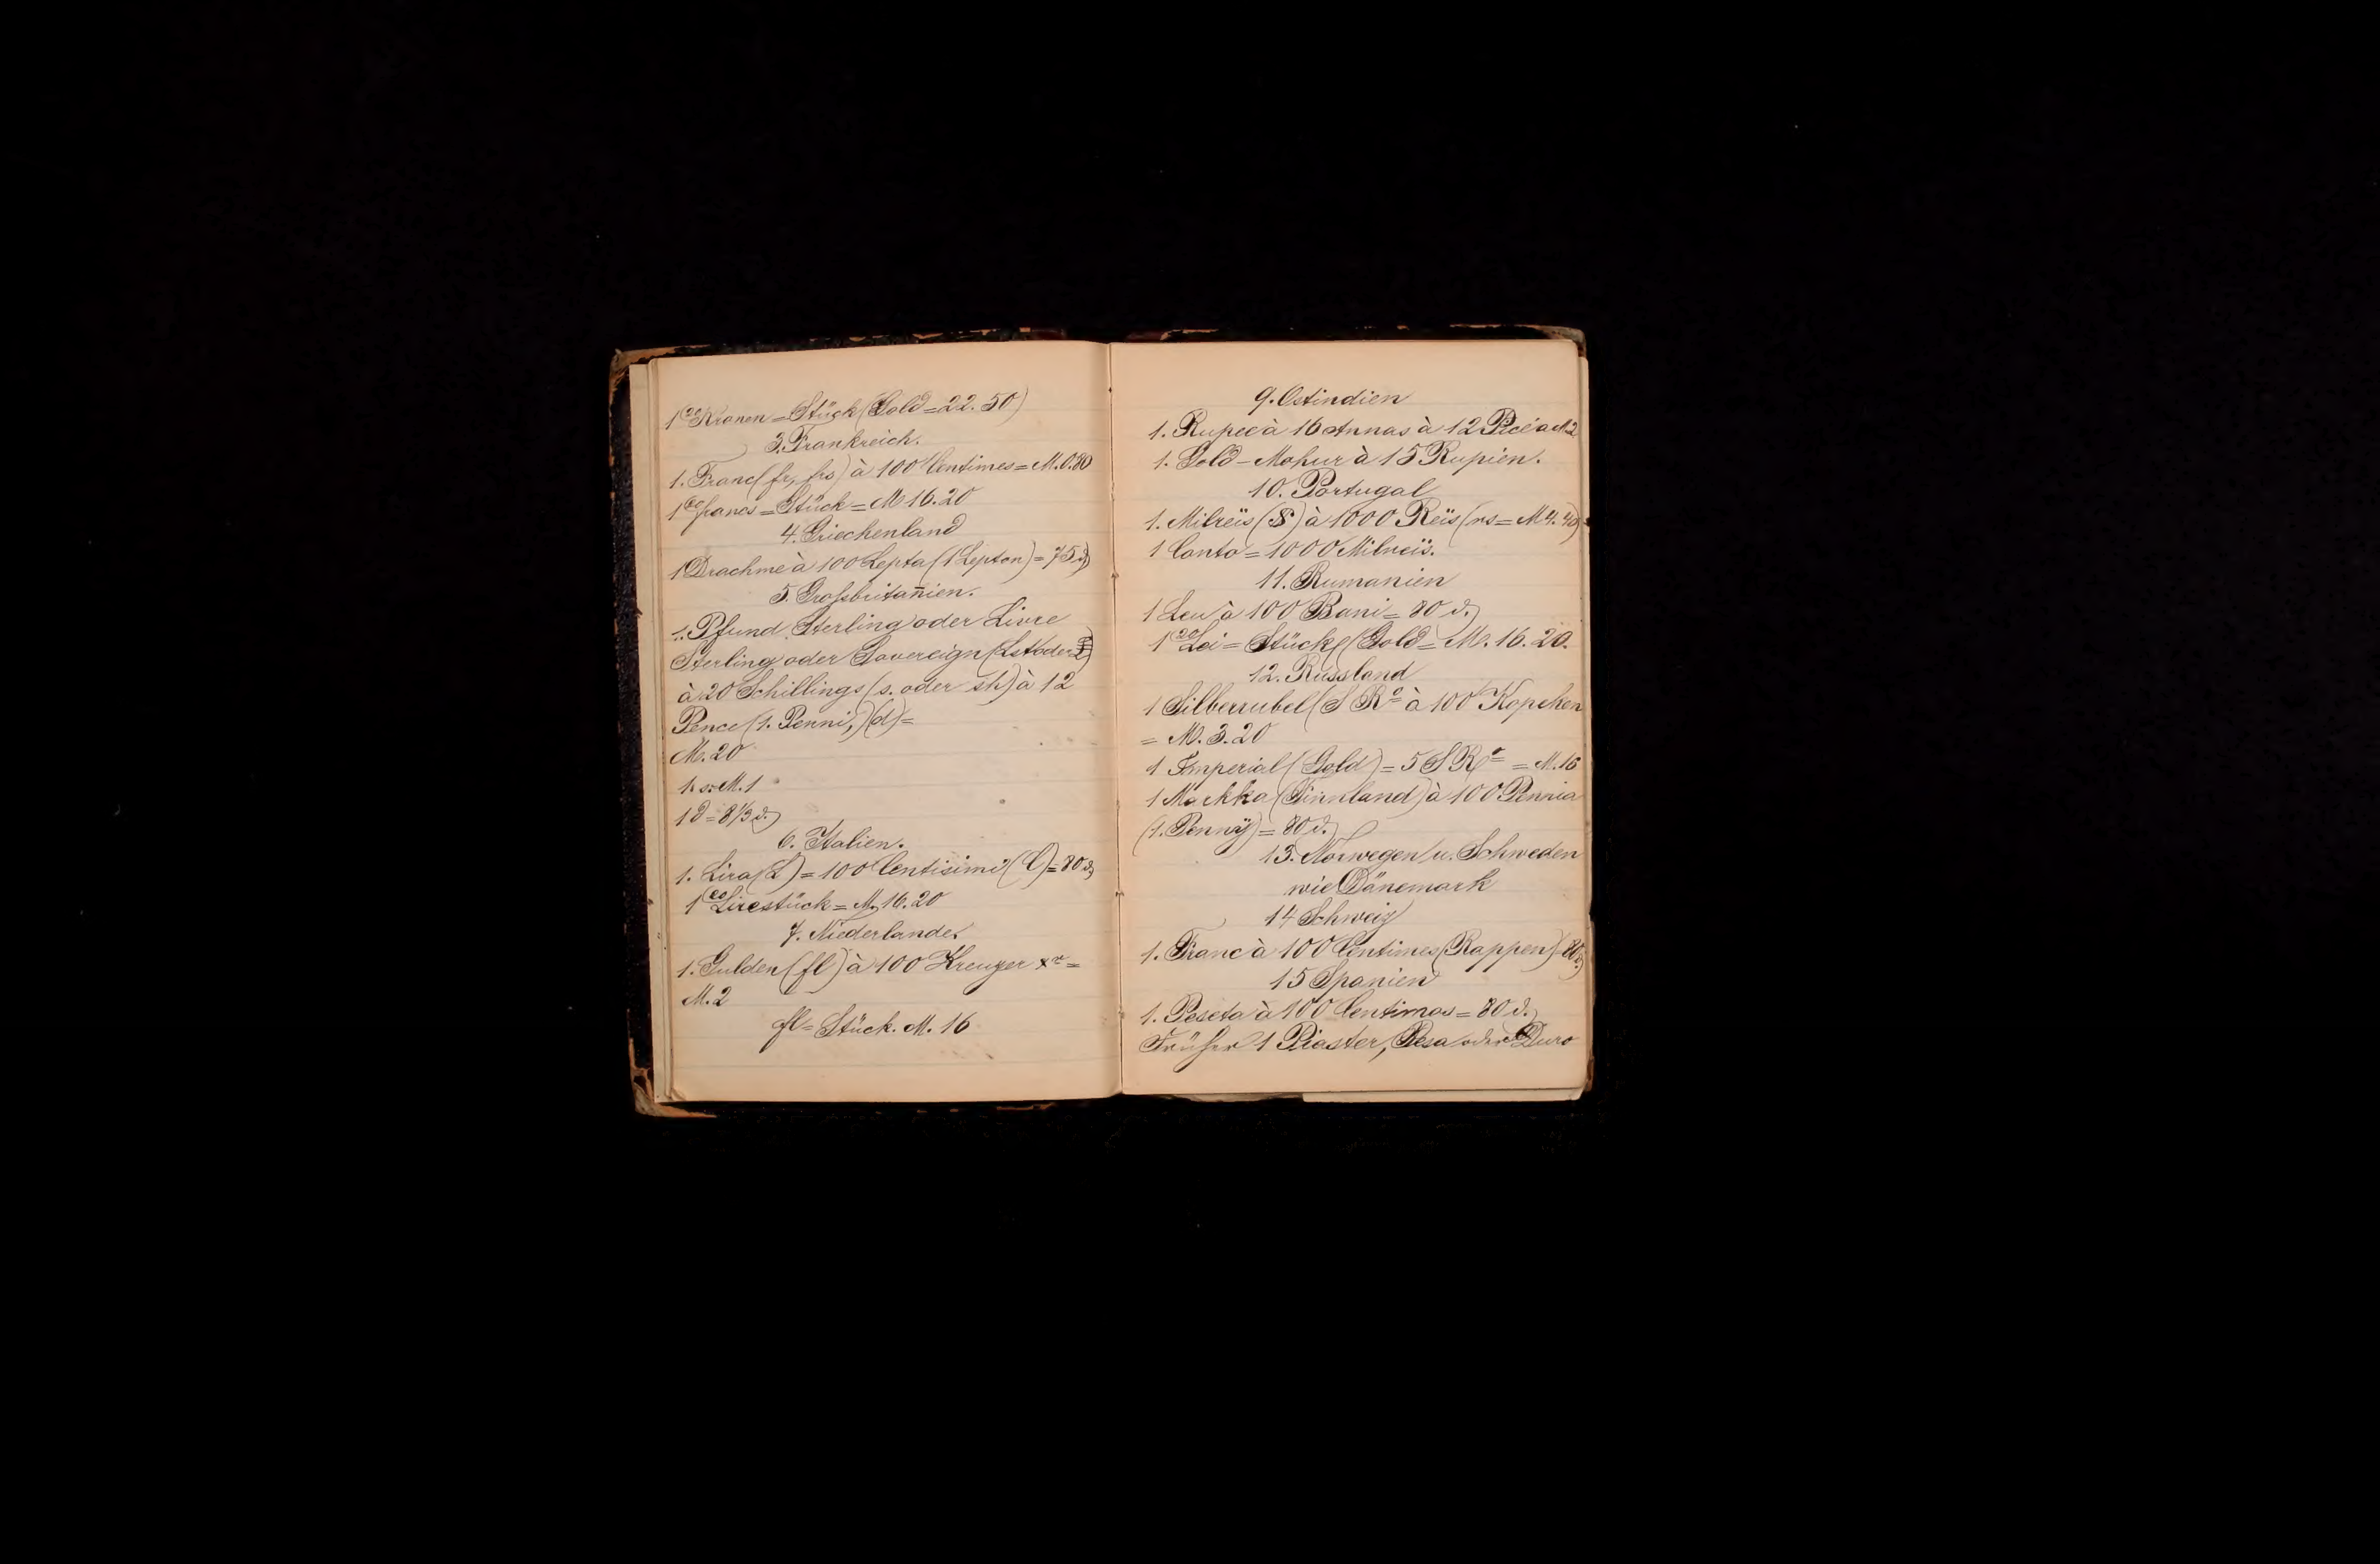 1 20 Kronen = Stück (Gold = 22.50)
3. Frankreich.
1. Franc (fr, frs) à 100 Centimes = M. 0.80
1 20 francs = Stück = M 16.20
4. Griechenland
1 Drachme à 100 Lepta (1 Lepton) = 75 ₰
5. Großbritan̄ien.
1. Pfund Sterling oder Livre
Sterling oder Sovereign (Lst oder £)
à 20 Schillings (s. oder sh) à 12
Pence (1. Penni,) (d) =
M. 20
1 s = M. 1
1 d = 8 1/3 ₰
6. Italien.
1. Lira (L) = 100 Centisimi (C) = 80 ₰
1 20 Lirestück = M. 16.20
7. Niederlande.
1. Gulden (fl) à 100 Kreuzer xr =
M. 2
fl = Stück. M. 16
9. Ostindien
1. Rupee à 16 Annas à 12 Pice à M 2
1. Gold-Mohur à 15 Rupien.
10. Portugal
1. Milreïs ($) à 1000 Reïs (rs = M 4.40)
1 Conto = 1000 Milreïs.
11. Rumanien
1 Leu à 100 Bani = 80 ₰
1 20 Lei = Stück (Gold = M. 16.20.
12. Russland
1 Silberrubel (S Ro à 100 Kopehen
= M. 3.20
1 Imperial (Gold) = 5 S Ro = M. 16
1 Markka (Finnland) à 100 Pennia
(1. Pennÿ) = 80 ₰
13. Norwegen u. Schweden
wie Dänemark
14 Schweiz
1. Franc à 100 Centimes (Rappen) = 80 ₰
15 Spanien
1. Peseta à 100 Centimas = 80 ₰
Früher 1 Piaster, Pesa oder Duro